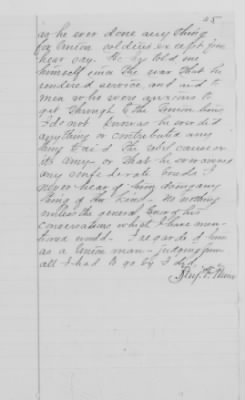 45
as he ever done any thing
for Union soldiers except from
hear say. He told me
himself since the war that he
rendered service and aid to
men who were anxious to
get through to the Union lines
I do not know as he ever did
anything or contributed any
thing to aid the rebel cause or
its army or that he ever owned
any confederate bonds I
never hear of him doing any
thing of the kind. No nothing
unless the general tenor of his
conversations which I have men-
tioned would. I regarded him
as a Union man - judging from
all I had to go by I did
Benj. F.